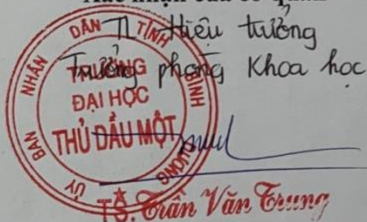 Xác nhận của cơ quan
TL Hiệu trưởng
Trưởng phòng Khoa học
ỦY BAN NHÂN DÂN TỈNH BÌNH DƯƠNG
TRƯỜNG
ĐẠI HỌC
THỦ DẦU MỘT
TS. Trần Văn Trung